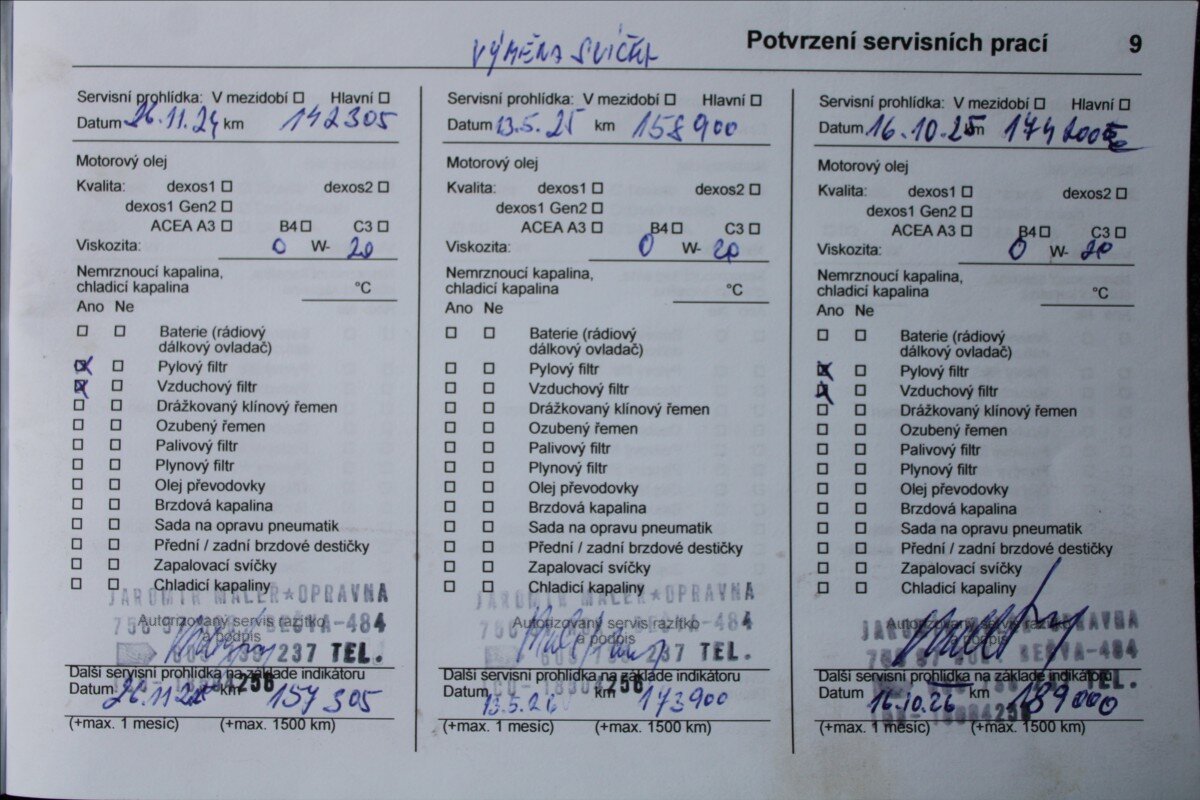 VÝMĚNA SVÍČEK
Potvrzení servisních prací 9
Servisní prohlídka: V mezidobí Hlavní
Datum 26.11.24 km 142305
Motorový olej
Kvalita: dexos1 dexos2
dexos1 Gen2
ACEA A3 B4 C3
Viskozita: 0 W- 20
Nemrznoucí kapalina,
chladicí kapalina °C
Ano Ne
Baterie (rádiový
dálkový ovladač)
Pylový filtr
Vzduchový filtr
Drážkovaný klínový řemen
Ozubený řemen
Palivový filtr
Plynový filtr
Olej převodovky
Brzdová kapalina
Sada na opravu pneumatik
Přední / zadní brzdové destičky
Zapalovací svíčky
Chladicí kapaliny
JAROMÍR MALER★OPRAVNA
Autorizovaný servis razítko
BEČVA-484
a podpis
237 TEL.
Další servisní prohlídka na základě indikátoru
256
Datum km 157305
(+max. 1 měsíc) (+max. 1500 km)
Servisní prohlídka: V mezidobí Hlavní
Datum 13.5.25 km 158900
Motorový olej
Kvalita: dexos1 dexos2
dexos1 Gen2
ACEA A3 B4 C3
Viskozita: 0 W- 20
Nemrznoucí kapalina,
chladicí kapalina °C
Ano Ne
Baterie (rádiový
dálkový ovladač)
Pylový filtr
Vzduchový filtr
Drážkovaný klínový řemen
Ozubený řemen
Palivový filtr
Plynový filtr
Olej převodovky
Brzdová kapalina
Sada na opravu pneumatik
Přední / zadní brzdové destičky
Zapalovací svíčky
Chladicí kapaliny
JAROMÍR MALER★OPRAVNA
Autorizovaný servis razítko
a podpis
237 TEL.
Další servisní prohlídka na základě indikátoru
256
Datum 13.5.26 km 173900
(+max. 1 měsíc) (+max. 1500 km)
Servisní prohlídka: V mezidobí Hlavní
Datum 16.10.25 km
Motorový olej
Kvalita: dexos1 dexos2
dexos1 Gen2
ACEA A3 B4 C3
Viskozita: 0 W- 20
Nemrznoucí kapalina,
chladicí kapalina °C
Ano Ne
Baterie (rádiový
dálkový ovladač)
Pylový filtr
Vzduchový filtr
Drážkovaný klínový řemen
Ozubený řemen
Palivový filtr
Plynový filtr
Olej převodovky
Brzdová kapalina
Sada na opravu pneumatik
Přední / zadní brzdové destičky
Zapalovací svíčky
Chladicí kapaliny
Autorizovaný servis razítko
a podpis
BEČVA-484
TEL.
Další servisní prohlídka na základě indikátoru
Datum 16.10.26 km 189000
(+max. 1 měsíc) (+max. 1500 km)